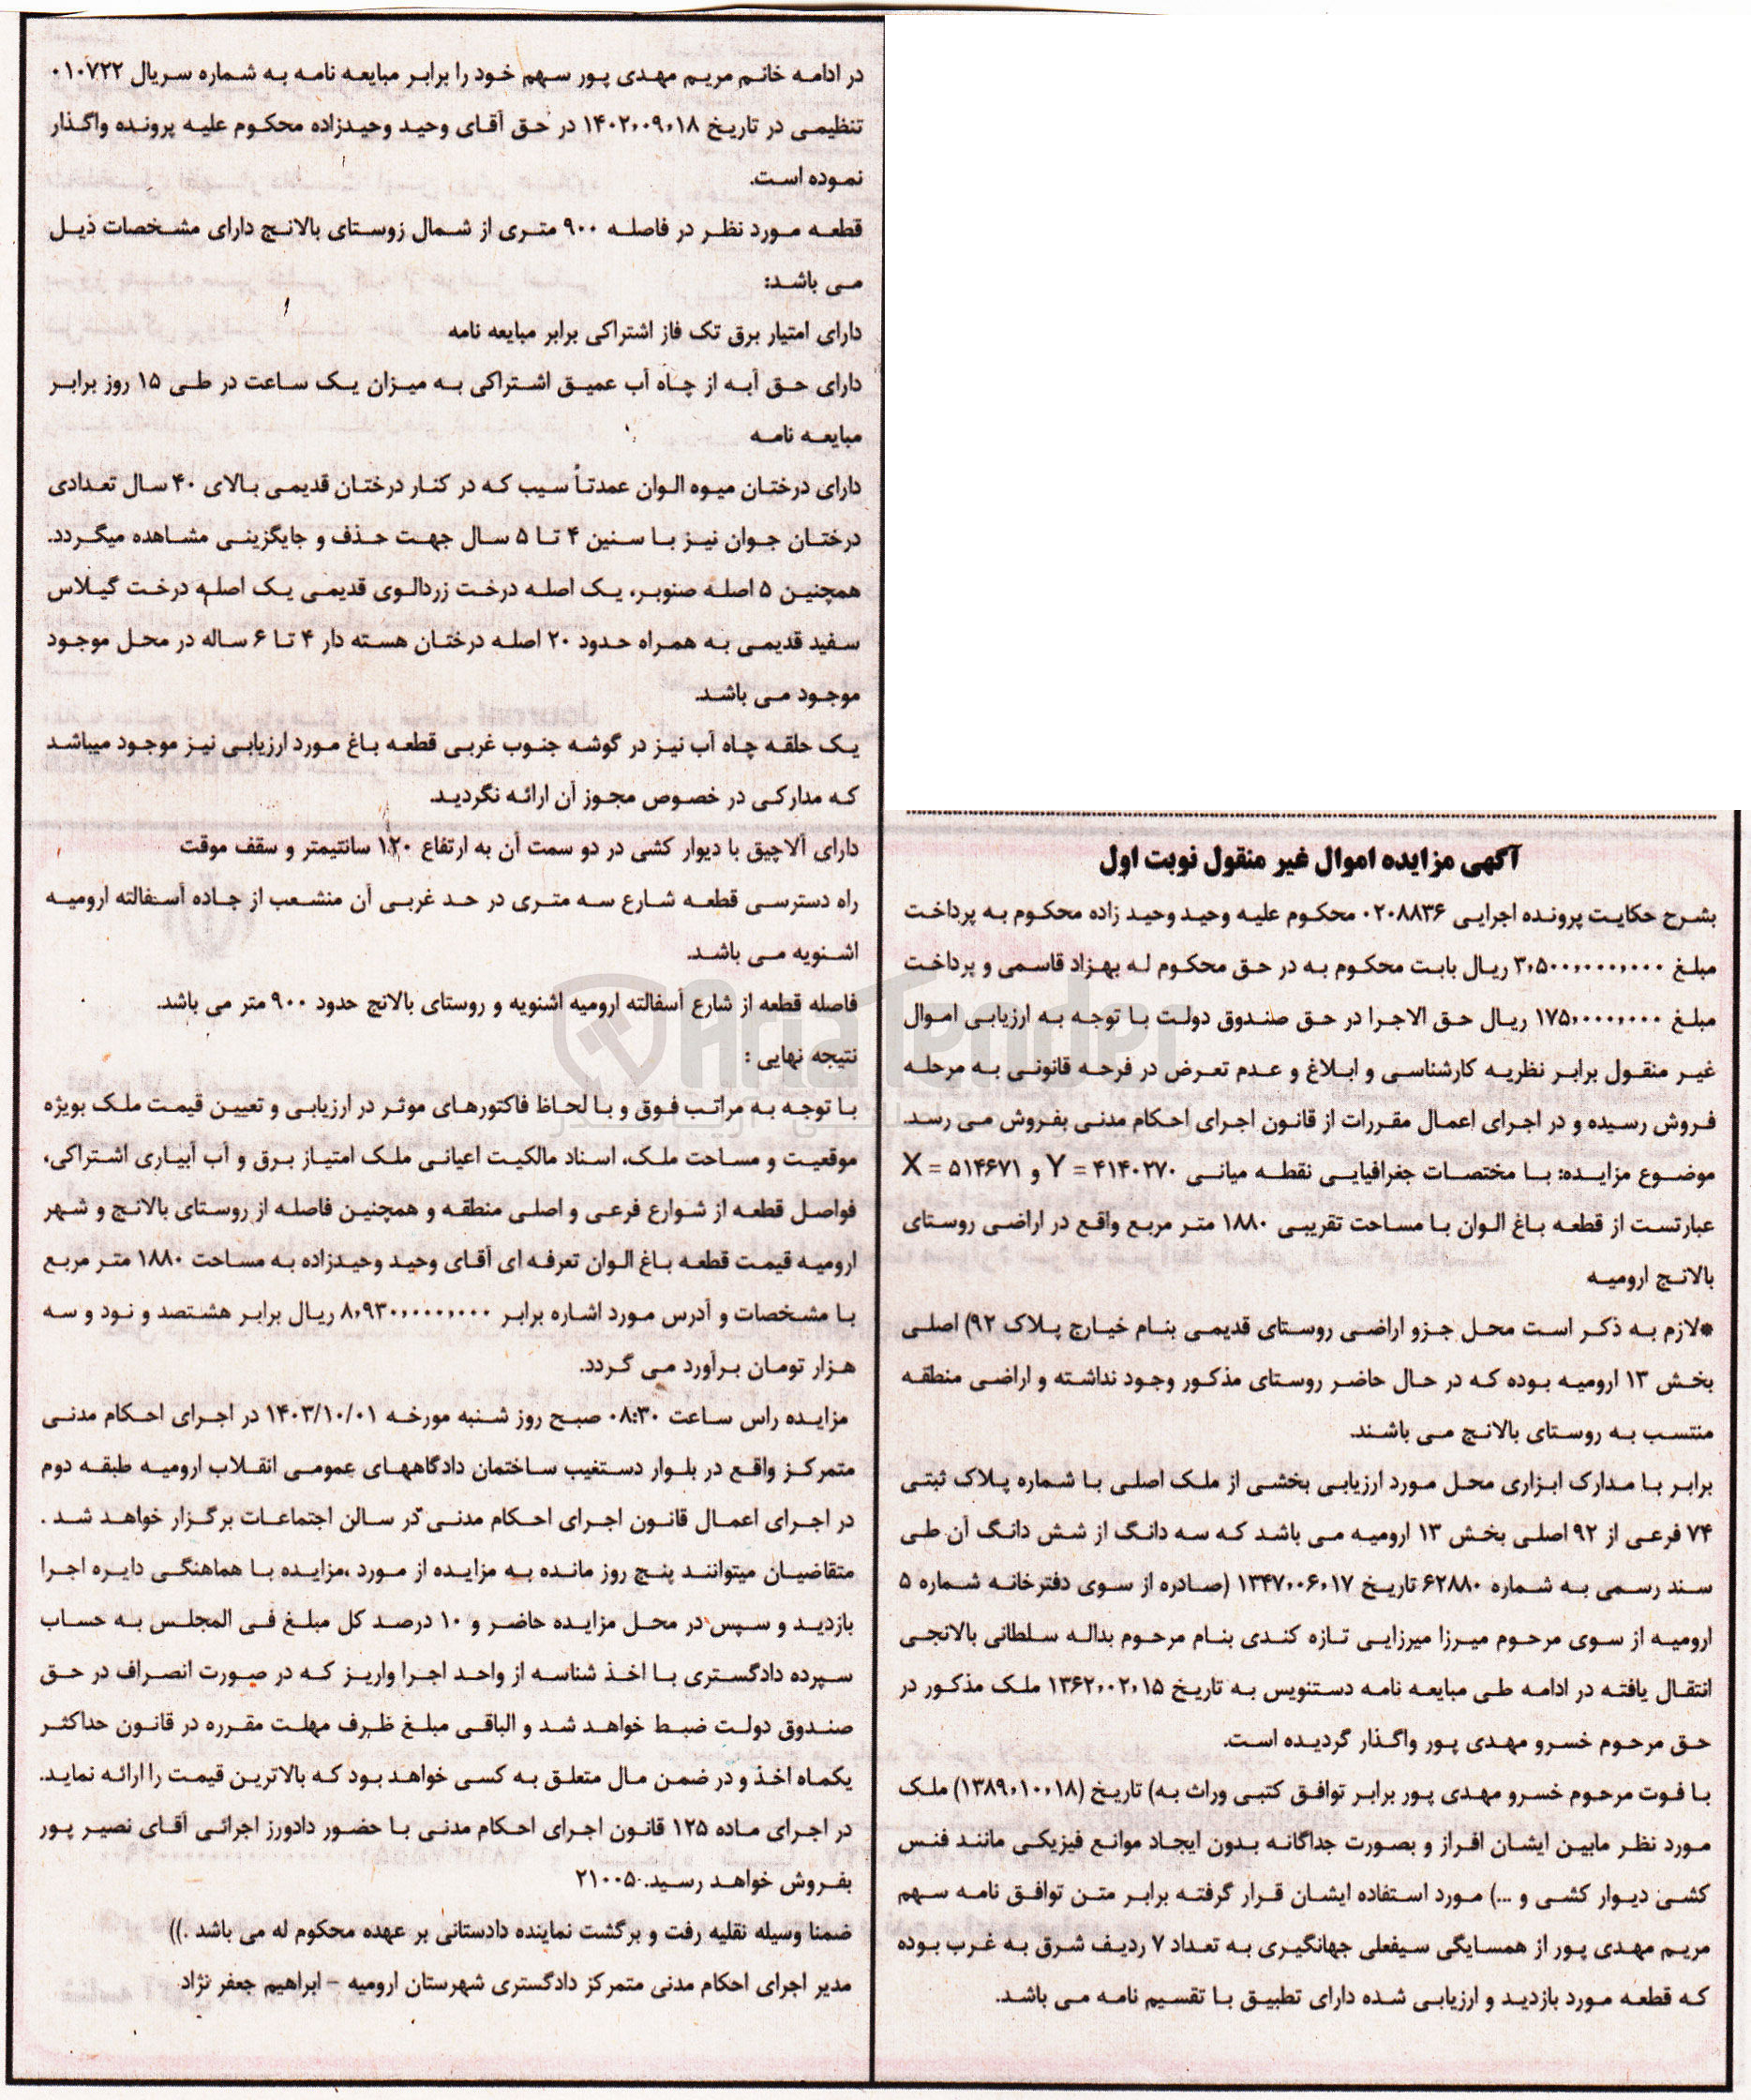 آگهی مزایده اموال غیر منقول نوبت اول
بشرح حکایت پرونده اجرایی ۰۲۰۸۸۳۶ محکوم علیه وحید وحید زاده محکوم به پرداخت
مبلغ ۳,۵۰۰,۰۰۰,۰۰۰ ریال بابت محکوم به در حق محکوم له بهزاد قاسمی و پرداخت
مبلغ ۱۷۵,۰۰۰,۰۰۰ ریال حق الاجرا در حق صندوق دولت با توجه به ارزیابی اموال
غیر منقول برابر نظریه کارشناسی و ابلاغ و عدم تعرض در فرجه قانونی به مرحله
فروش رسیده و در اجرای اعمال مقررات از قانون اجرای احکام مدنی بفروش می رسد.
موضوع مزایده: با مختصات جغرافیایی نقطه میانی Y = ۴۱۴۰۲۷۰ و X = ۵۱۴۶۷۱
عبارتست از قطعه باغ الوان با مساحت تقریبی ۱۸۸۰ متر مربع واقع در اراضی روستای
بالانج ارومیه
*لازم به ذکر است محل جزو اراضی روستای قدیمی بنام خیارج پلاک ۹۲) اصلی
بخش ۱۳ ارومیه بوده که در حال حاضر روستای مذکور وجود نداشته و اراضی منطقه
منتسب به روستای بالانج می باشند.
برابر با مدارک ابزاری محل مورد ارزیابی بخشی از ملک اصلی با شماره پلاک ثبتی
۷۴ فرعی از ۹۲ اصلی بخش ۱۳ ارومیه می باشد که سه دانگ از شش دانگ آن طی
سند رسمی به شماره ۶۲۸۸۰ تاریخ ۱۳۴۷,۰۶,۱۷ (صادره از سوی دفترخانه شماره ۵
ارومیه از سوی مرحوم میرزا میرزایی تازه کندی بنام مرحوم بداله سلطانی بالانجی
انتقال یافته در ادامه طی مبایعه نامه دستنویس به تاریخ ۱۳۶۲,۰۲,۱۵ ملک مذکور در
حق مرحوم خسرو مهدی پور واگذار گردیده است.
با فوت مرحوم خسرو مهدی پور برابر توافق کتبی وراث به) تاریخ (۱۳۸۹,۱۰,۱۸) ملک
مورد نظر مابین ایشان افراز و بصورت جداگانه بدون ایجاد موانع فیزیکی مانند فنس
کشی دیوار کشی و ...) مورد استفاده ایشان قرار گرفته برابر متن توافق نامه سهم
مریم مهدی پور از همسایگی سیفعلی جهانگیری به تعداد ۷ ردیف شرق به غرب بوده
که قطعه مورد بازدید و ارزیابی شده دارای تطبیق با تقسیم نامه می باشد.
در ادامه خانم مریم مهدی پور سهم خود را برابر مبایعه نامه به شماره سریال ۰۱۰۷۲۲
تنظیمی در تاریخ ۱۴۰۲,۰۹,۱۸ در حق آقای وحید وحیدزاده محکوم علیه پرونده واگذار
نموده است.
قطعه مورد نظر در فاصله ۹۰۰ متری از شمال زوستای بالانج دارای مشخصات ذیل
می باشد:
دارای امتیار برق تک فاز اشتراکی برابر مبایعه نامه
دارای حق آبه از چاه آب عمیق اشتراکی به میزان یک ساعت در طی ۱۵ روز برابر
مبایعه نامه
دارای درختان میوه الوان عمدتاً سیب که در کنار درختان قدیمی بالای ۴۰ سال تعدادی
درختان جوان نیز با سنین ۴ تا ۵ سال جهت حذف و جایگزینی مشاهده میگردد.
همچنین ۵ اصله صنوبر، یک اصله درخت زردالوی قدیمی یک اصله درخت گیلاس
سفید قدیمی به همراه حدود ۲۰ اصله درختان هسته دار ۴ تا ۶ ساله در محل موجود
موجود می باشد.
یک حلقه چاه آب نیز در گوشه جنوب غربی قطعه باغ مورد ارزیابی نیز موجود میباشد
که مدارکی در خصوص مجوز آن ارائه نگردید.
دارای آلاچیق با دیوار کشی در دو سمت آن به ارتفاع ۱۲۰ سانتیمتر و سقف موقت
راه دسترسی قطعه شارع سه متری در حد غربی آن منشعب از جاده آسفالته ارومیه
اشنویه می باشد.
فاصله قطعه از شارع آسفالته ارومیه اشنویه و روستای بالانج حدود ۹۰۰ متر می باشد.
نتیجه نهایی :
با توجه به مراتب فوق و با لحاظ فاکتورهای موثر در ارزیابی و تعیین قیمت ملک بویژه
موقعیت و مساحت ملک، اسناد مالکیت اعیانی ملک امتیاز برق و آب آبیاری اشتراکی،
فواصل قطعه از شوارع فرعی و اصلی منطقه و همچنین فاصله از روستای بالانج و شهر
ارومیه قیمت قطعه باغ الوان تعرفه ای آقای وحید وحیدزاده به مساحت ۱۸۸۰ متر مربع
با مشخصات و آدرس مورد اشاره برابر ۸,۹۳۰,۰۰۰,۰۰۰ ریال برابر هشتصد و نود و سه
هزار تومان برآورد می گردد.
مزایده راس ساعت ۰۸:۳۰ صبح روز شنبه مورخه ۱۴۰۳/۱۰/۰۱ در اجرای احکام مدنی
متمرکز واقع در بلوار دستغیب ساختمان دادگاههای عمومی انقلاب ارومیه طبقه دوم
در اجرای اعمال قانون اجرای احکام مدنی در سالن اجتماعات برگزار خواهد شد .
متقاضیان میتوانند پنج روز مانده به مزایده از مورد ،مزایده با هماهنگی دایره اجرا
بازدید و سپس در محل مزایده حاضر و ۱۰ درصد کل مبلغ فی المجلس به حساب
سپرده دادگستری با اخذ شناسه از واحد اجرا واریز که در صورت انصراف در حق
صندوق دولت ضبط خواهد شد و الباقی مبلغ ظرف مهلت مقرره در قانون حداکثر
یکماه اخذ و در ضمن مال متعلق به کسی خواهد بود که بالاترین قیمت را ارائه نماید.
در اجرای ماده ۱۲۵ قانون اجرای احکام مدنی با حضور دادورز اجرائی آقای نصیر پور
بفروش خواهد رسید. ۲۱۰۰۵
ضمنا وسیله نقلیه رفت و برگشت نماینده دادستانی بر عهده محکوم له می باشد .))
مدیر اجرای احکام مدنی متمرکز دادگستری شهرستان ارومیه – ابراهیم جعفر نژاد
AriaTender